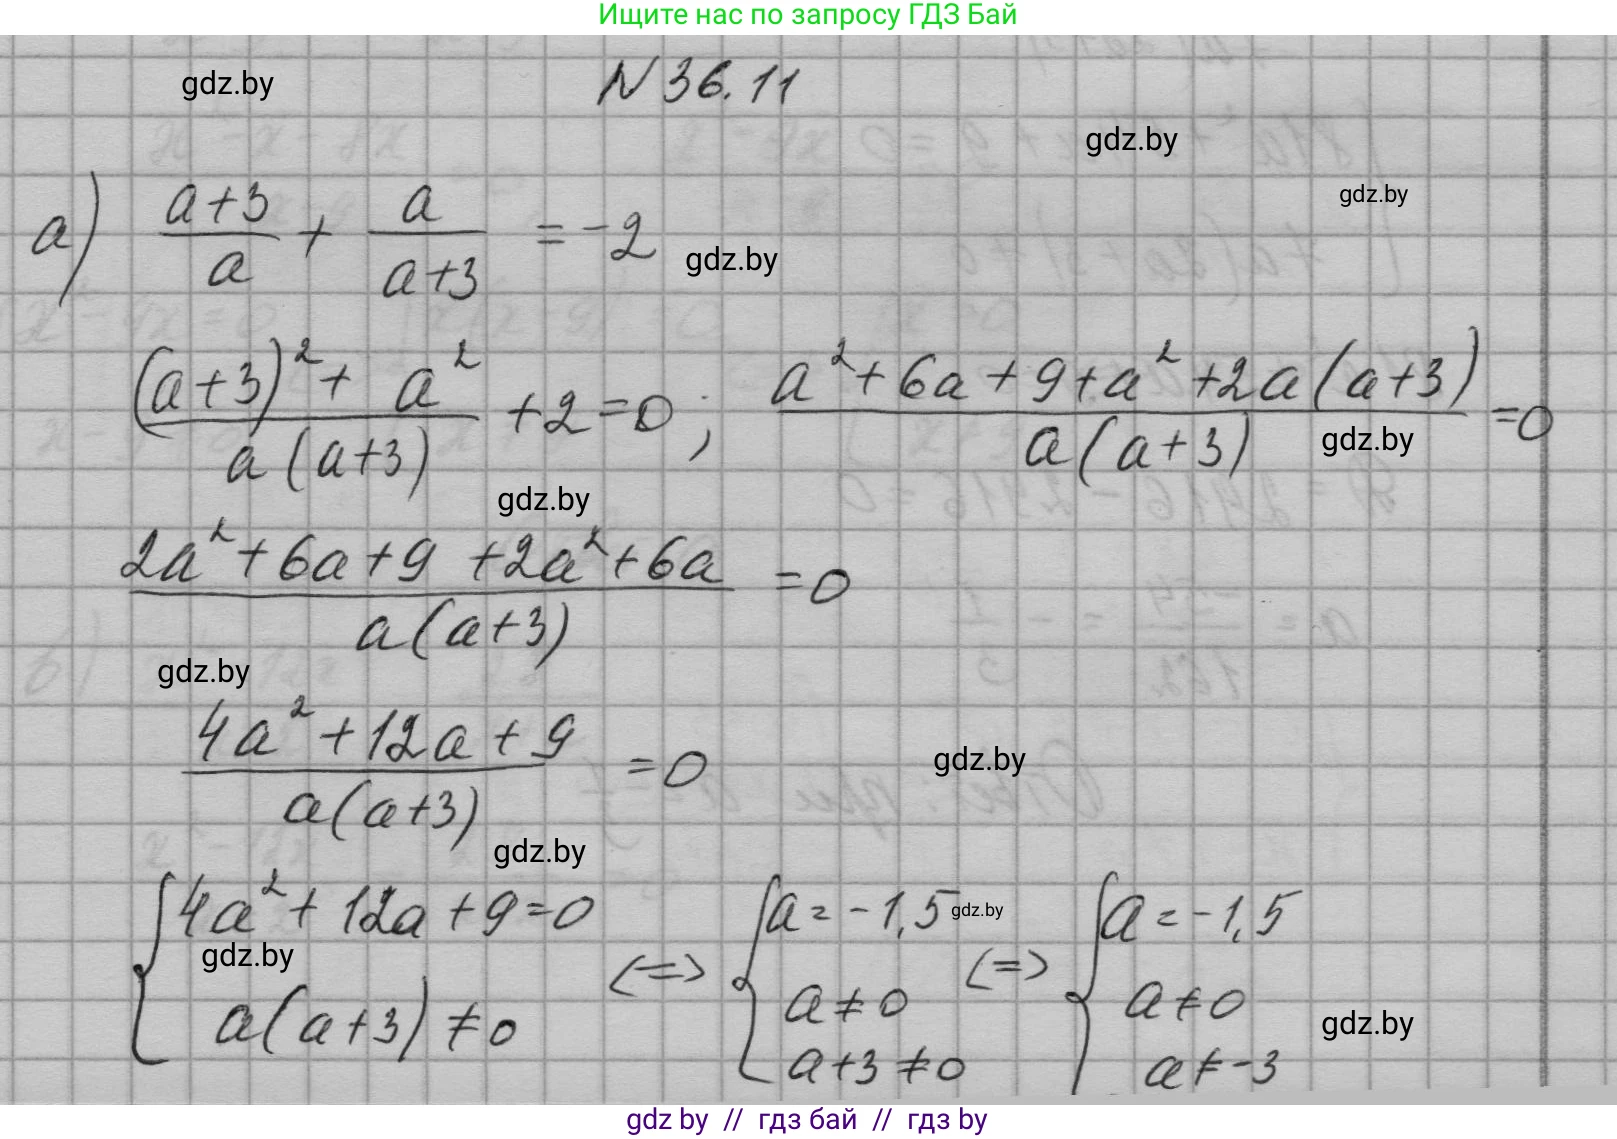 Ищите нас по запросу ГДЗ Бай
N 36.11
gdz.by
gdz.by
gdz.by
а) (a+3)/a + a/(a+3) = -2
gdz.by
((a+3)² + a²)/(a(a+3)) + 2 = 0; (a² + 6a + 9 + a² + 2a(a+3))/(a(a+3)) = 0
gdz.by
gdz.by
(2a² + 6a + 9 + 2a² + 6a)/(a(a+3)) = 0
gdz.by
(4a² + 12a + 9)/(a(a+3)) = 0
gdz.by
gdz.by
{ 4a² + 12a + 9 = 0 a(a+3) ≠ 0 <=> { a = -1,5 a ≠ 0 a+3 ≠ 0 <=> { a = -1,5 a ≠ 0 a ≠ -3
gdz.by
gdz.by
gdz.by
gdz by // гдз бай // гдз by